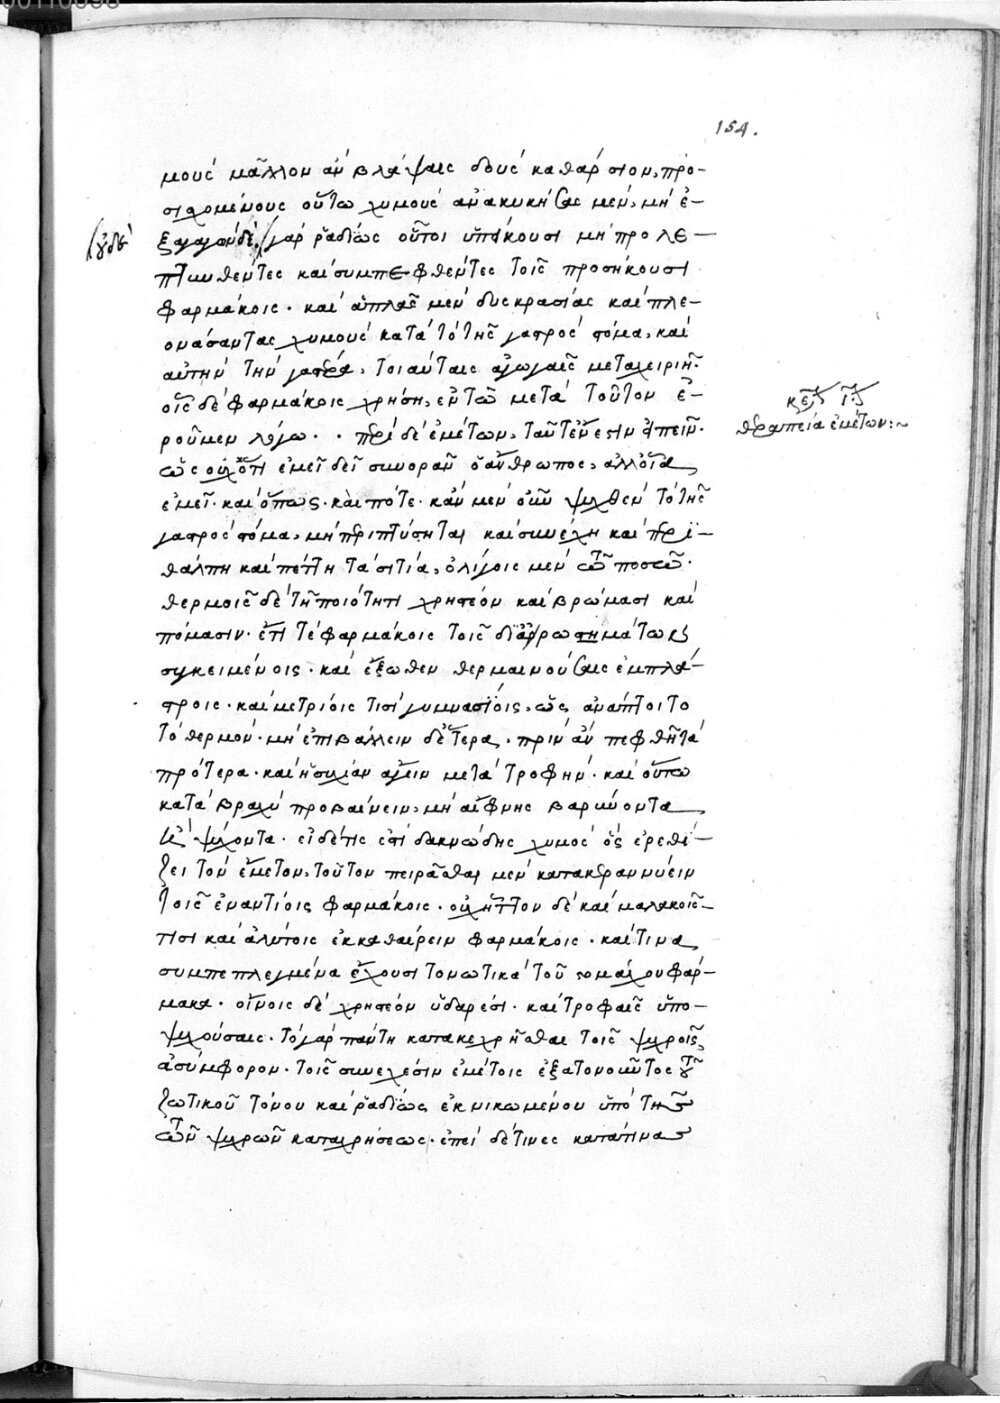 154.
μους μᾶλλον ἂν βλάψαις δοὺς καθάρσιον, προ-
σισχομένους οὕτω χυμοὺς ἀνακυκήσας μὲν, μὴ ἐ-
ξαγαγὼν δέ. γὰρ ῥαδίως οὗτοι ὑπείκουσι μὴ προλε-
οὐδὲ
πτυνθέντες καὶ συμπεφθέντες τοῖς προσήκουσι
φαρμάκοις. καὶ ἁπλᾶς μὲν δυσκρασίας καὶ πλε-
ονάσαντας χυμοὺς κατὰ τὸ τῆς γαστρὸς στόμα, καὶ
αὐτὴν τὴν γαστέρα, τοιαύταις ἀγωγαῖς μεταχειρι
οἷς δὲ φαρμάκοις χρήση, ἐν τῶ μετὰ τοῦτον ἐ-
ροῦμεν λόγω. περὶ δὲ ἐμέτων, ταῦτ' ἔνεστιν εἰπεῖν.
κεφ ιζ
θεραπεία ἐμέτων:~
ὡς οὐχ ὅτι ἐμεῖ δεῖ συνορᾶν ὁ ἄνθρωπος, ἀλλ' ὅτα
ἐμεῖ. καὶ ὅπως. καὶ πότε. κἂν μὲν οὖν ψυχθὲν τὸ τῆς
γαστρὸς στόμα, μὴ περιπτύσηται καὶ συνέχη καὶ περι-
θάλπη καὶ πέττη τὰ σιτία, ὀλίγοις μὲν τῶ ποσῶ.
θερμοῖς δὲ τῆ ποιότητι χρηστέον καὶ βρώμασι καὶ
πόμασιν. ἔτι τε φαρμάκοις τοῖς δι' ἀρωμάτων
συγκειμένοις. καὶ ἔξωθεν θερμαινούσαις ἐμπλά-
στροις. καὶ μετρίοις τισὶ γυμνασίοις, ὡς ἀνάπτοιτο
τὸ θερμόν. μὴ ἐπιβάλλειν δ' ἕτερα, πρὶν ἂν πεφθῆ τὰ
πρότερα. καὶ ἡσυχίαν ἄγειν μετὰ τροφήν. καὶ οὕτω
κατὰ βραχὺ προβαίνειν, μὴ αἴφνης βαρύνοντα
καὶ ψύχοντα. εἰ δέ τις ἐστὶ δακνώδης χυμὸς ὃς ἐρεθί-
ζει τὸν ἔμετον, τοῦτον πειρᾶσθαι μὲν κατακεραννύειν
τοῖς ἐναντίοις φαρμάκοις. οὐχ ἧττον δὲ καὶ μαλακοῖς
τισι καὶ ἀλύποις ἐκκαθαίρειν φαρμάκοις. καὶ τινα
συμπεπλεγμένα ἔχουσι τονωτικὰ τοῦ στομάχου φάρ-
μακα. οἴνοις δὲ χρηστέον ὑδαρέσι. καὶ τροφαῖς ὑπο-
ψυχούσαις. τὸ γὰρ πάντη κατακεχρῆσθαι τοῖς ψυχροῖς,
ἀσύμφορον. τοῖς συνεχέσιν ἐμέτοις ἐξατονοῦντος τοῦ
ζωτικοῦ τόνου καὶ ῥαδίως ἐκνικωμένου ὑπὸ τῆς
τῶν ψυχρῶν καταχρήσεως. ἐπεὶ δέ τινες καταπίνας